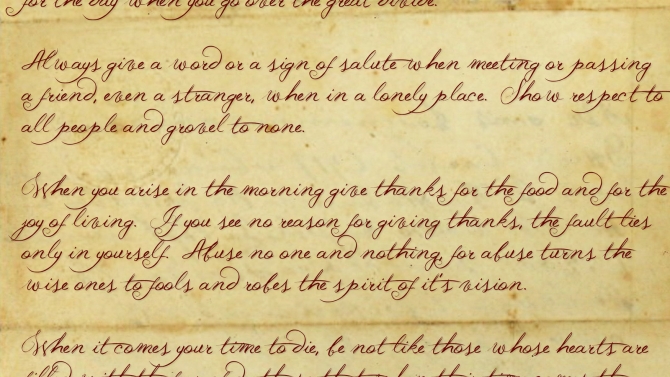 for the day when you go over the great divide.
Always give a word or a sign of salute when meeting or passing
a friend, even a stranger, when in a lonely place. Show respect to
all people and grovel to none.
When you arise in the morning give thanks for the food and for the
joy of living. If you see no reason for giving thanks, the fault lies
only in yourself. Abuse no one and nothing, for abuse turns the
wise ones to fools and robes the spirit of it's vision.
When it comes your time to die, be not like those whose hearts are